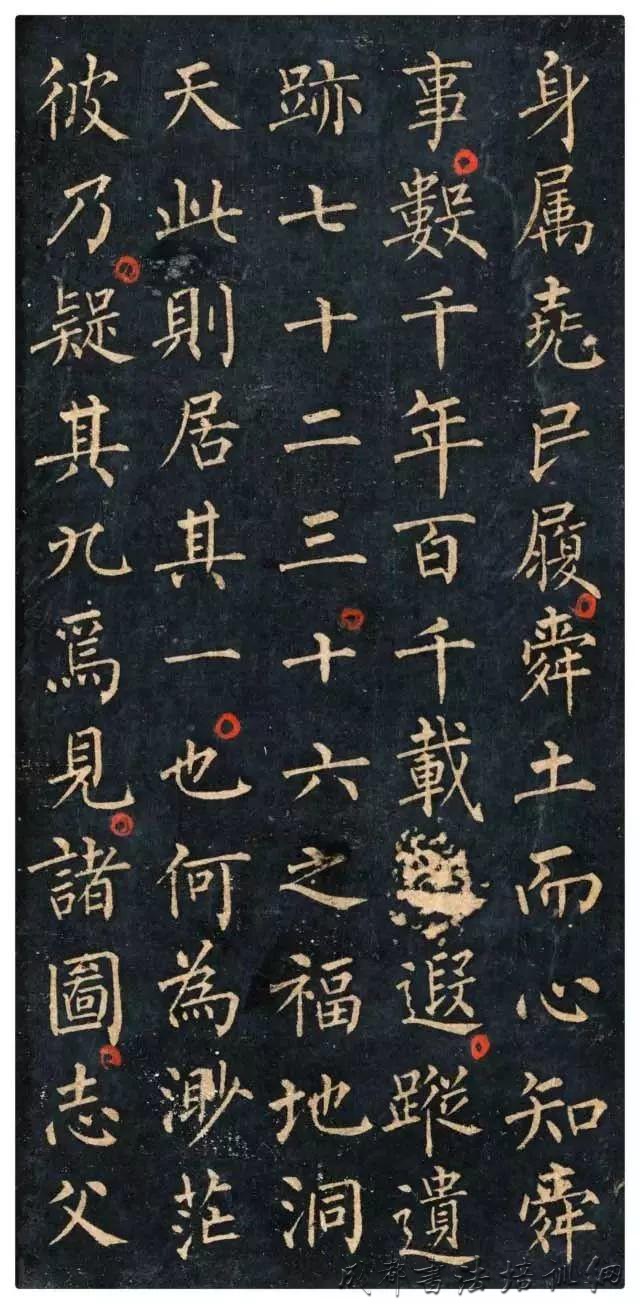 身属堯民履舜土而心知舜
事數千年百千載遐蹤遺
跡七十二三十六之福地洞
天此則居其一也何為渺茫
彼乃疑其九焉見諸圖志父
成都書法培训網